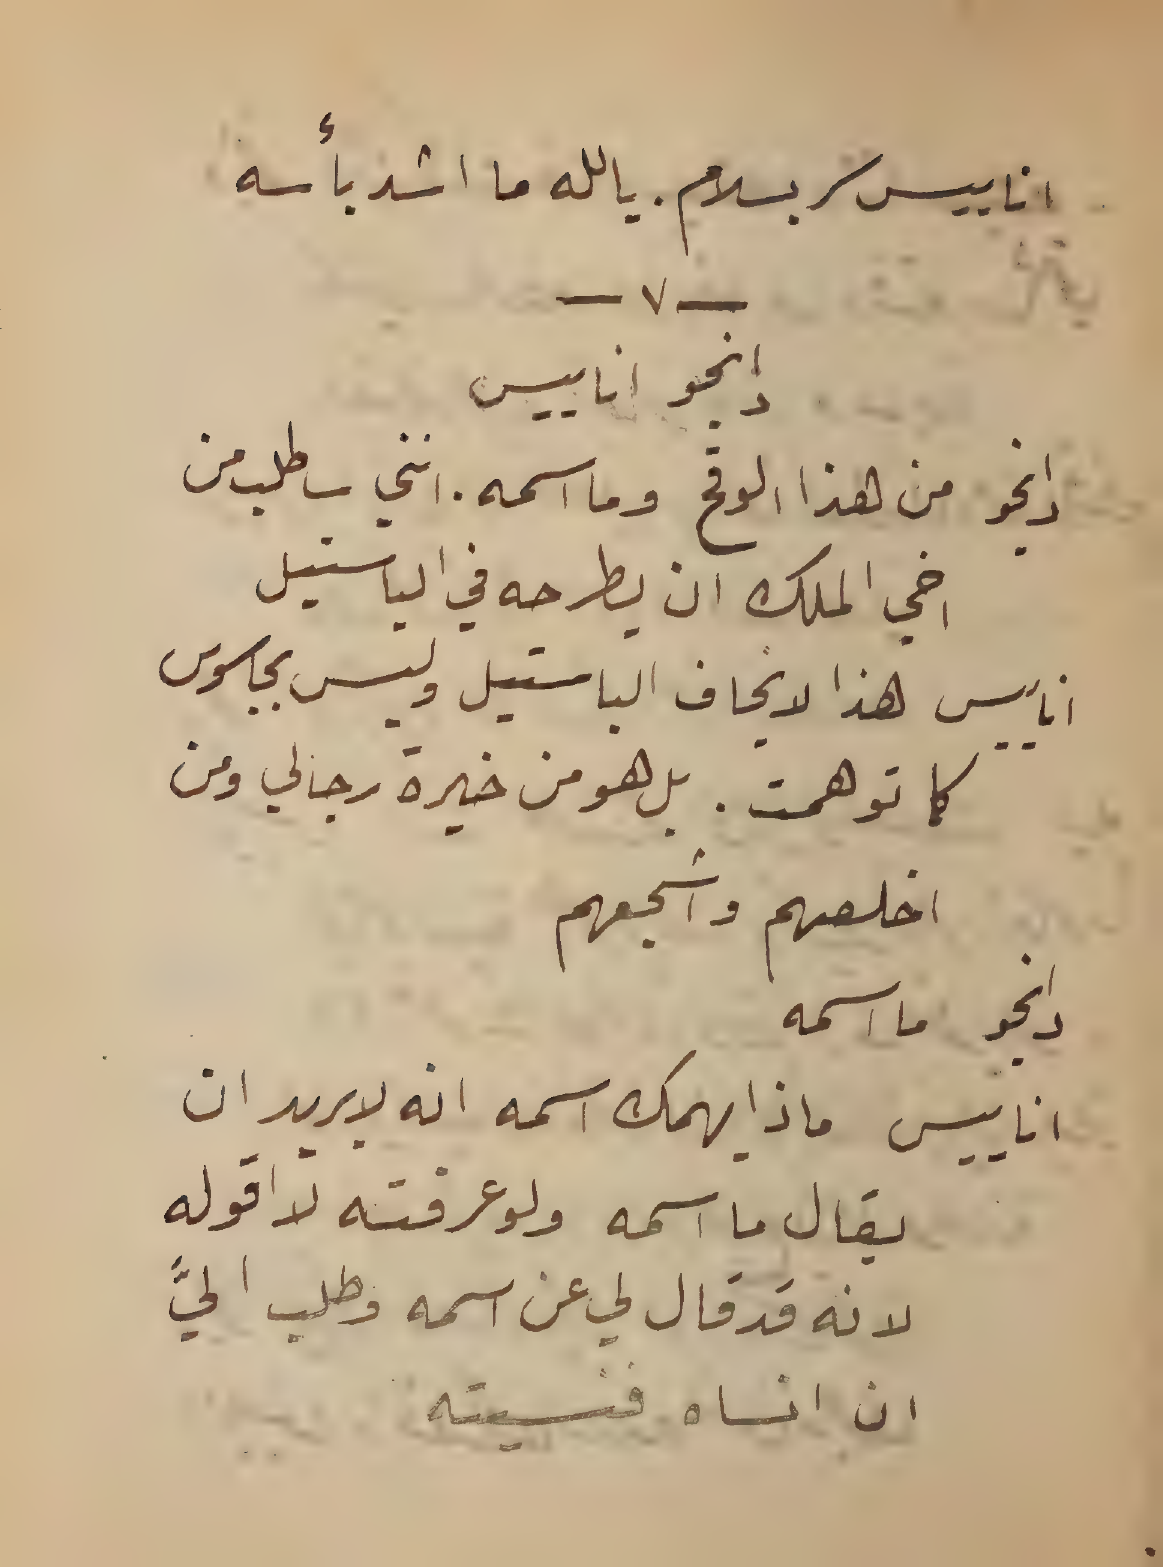 اناييس سر بسلام. يالله ما اشد بأسه
— ٧ —
دانجو اناييس
دانجو من هذا الوقح وما اسمه. انني ساطلب من
اخي الملك ان يطرحه في الباستيل
اناييس هذا لا يخاف الباستيل وليس بجاسوس
كما توهمت. بل هو من خيرة رجالي ومن
اخلصهم واشجعهم
دانجو ما اسمه
اناييس ماذا يهمك اسمه انه لا يريد ان
يقال ما اسمه ولو عرفته لا اقوله
لانه قد قال لي عن اسمه وطلب اليَّ
ان انساه فنسيته